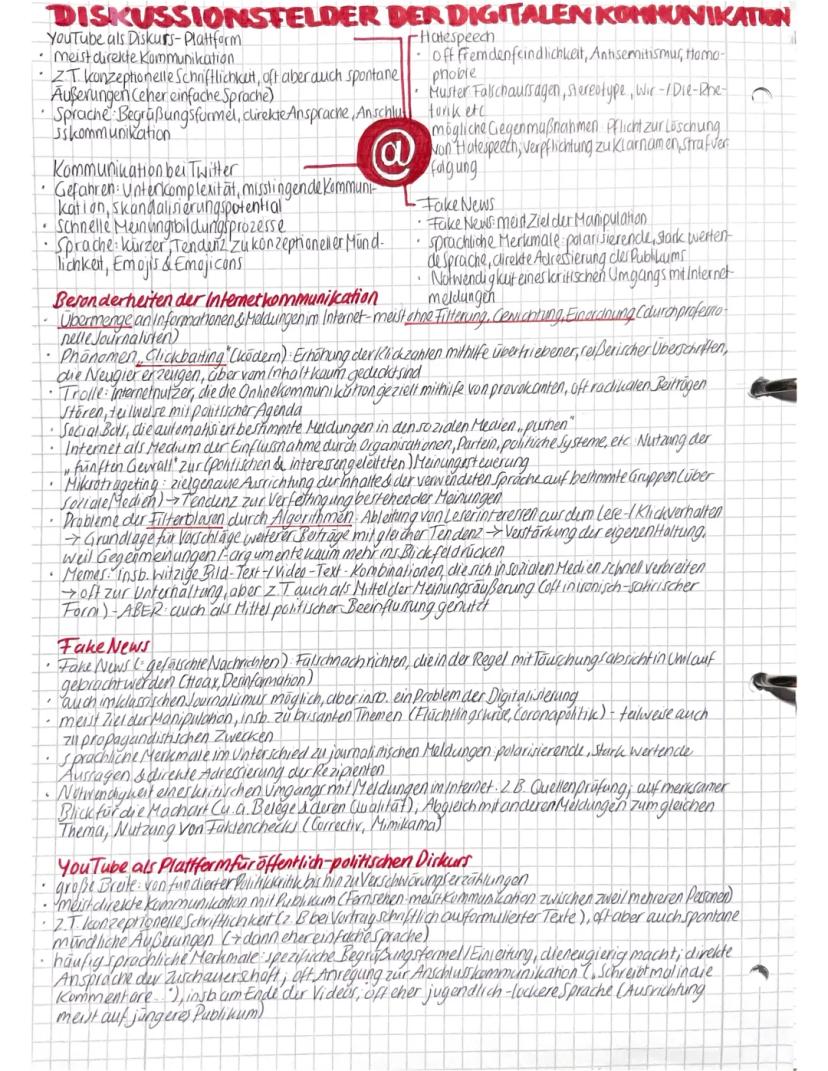 DISKUSSIONSFELDER DER DIGITALEN KOMMUNIKATION
YouTube als Diskurs-Plattform
• meist direkte Kommunikation
• z.T. konzeptionelle Schriftlichkeit, oft aber auch spontane
Äußerungen (eher einfache Sprache)
• Sprache: Begrüßungsformel, direkte Ansprache, Anschlu
sskommunikation
Kommunikation bei Twitter
• Gefahren: Unterkomplexität, misslingende Kommuni-
kation, Skandalisierungspotential
• schnelle Meinungsbildungsprozesse
• Sprache: kürzer, Tendenz zu konzeptioneller Münd-
lichkeit, Emojis & Emojicons
@
Hatespeech
• oft Fremdenfeindlichkeit, Antisemitismus, Homo-
phobie
• Muster Falschaussagen, Stereotype, Wir-/Die-Rhe-
torik etc
mögliche Gegenmaßnahmen Pflicht zur Löschung
von Hatespeech, Verpflichtung zu Klarnamen, Strafver
folgung
Fake News
• Fake News: meist Ziel der Manipulation
• sprachliche Merkmale: polarisierende, stark werten-
de Sprache, direkte Adressierung des Publikums
• Notwendigkeit eines kritischen Umgangs mit Internet-
meldungen
Besonderheiten der Internetkommunikation
• Übermenge an Informationen & Meldungen im Internet - meist ohne Filterung, Gewichtung, Einordnung (durch professio-
nelle Journalisten)
• Phänomen „Clickbaiting" (ködern): Erhöhung der Klickzahlen mithilfe übertriebener, reißerischer Überschriften,
die Neugier erzeugen, aber vom Inhalt kaum gedeckt sind
• Trolle: Internetnutzer, die die Onlinekommunikation gezielt mithilfe von provokanten, oft radikalen Beiträgen
stören, teilweise mit politischer Agenda
• Social Bots, die automatisiert bestimmte Meldungen in den sozialen Medien „pushen"
• Internet als Medium der Einflussnahme durch Organisationen, Partein, politische Systeme, etc. Nutzung der
„fünften Gewalt" zur (politischen & interessengeleiteten) Meinungssteuerung
• Mikrotrageting: zielgenaue Ausrichtung der Inhalte & der verwendeten Sprache auf bestimmte Gruppen (über
soziale Medien) → Tendenz zur Verfestigung bestehender Meinungen
• Probleme der Filterblasen durch Algorithmen: Ableitung von Leserinteressen aus dem Lese-/Klickverhalten
→ Grundlage für Vorschläge weiterer Beiträge mit gleicher Tendenz → Verstärkung der eigenen Haltung,
weil Gegenmeinungen/-argumente kaum mehr ins Blickfeld rücken
• Memes: insb. witzige Bild-Text-/Video-Text-Kombinationen, die sich in sozialen Medien schnell verbreiten
→ oft zur Unterhaltung, aber z.T auch als Mittel der Meinungsäußerung (oft in ironisch-satirischer
Form) - ABER: auch als Mittel politischer Beeinflussung genutzt
Fake News
• Fake News (= gefälschte Nachrichten): Falschnachrichten, die in der Regel mit Täuschungsabsicht in Umlauf
gebracht werden (Hoax, Desinformation)
• auch im klassischen Journalismus möglich, aber insb. ein Problem der Digitalisierung
• meist Ziel der Manipulation, insb. zu brisanten Themen (Flüchtlingskrise, Coronapolitik) - teilweise auch
zu propagandistischen Zwecken
• sprachliche Merkmale im Unterschied zu journalistischen Meldungen polarisierende, stark wertende
Aussagen & direkte Adressierung der Rezipienten
• Notwendigkeit eines kritischen Umgangs mit Meldungen im Internet: z.B. Quellenprüfung, aufmerksamer
Blick für die Machart (u.a. Belege & deren Qualität), Abgleich mit anderen Meldungen zum gleichen
Thema, Nutzung von Faktenchecks (Correctiv, Mimikama)
YouTube als Plattform für öffentlich-politischen Diskurs
• große Breite: von fundierter Politikkritik bis hin zu Verschwörungserzählungen
• meist direkte Kommunikation mit Publikum (Fernsehen: meist Kommunikation zwischen zwei/mehreren Personen)
• z.T. konzeptionelle Schriftlichkeit (z.B bei Vortrag schriftlich ausformulierter Texte), oft aber auch spontane
mündliche Äußerungen (→ dann eher einfache Sprache)
• häufig sprachliche Merkmale: spezifische Begrüßungsformel/Einleitung, die neugierig macht; direkte
Ansprache der Zuschauerschaft; oft Anregung zur Anschlusskommunikation („schreibt mal in die
Kommentare..."), insb am Ende der Videos; oft eher jugendlich-lockere Sprache (Ausrichtung
meist auf jüngeres Publikum)